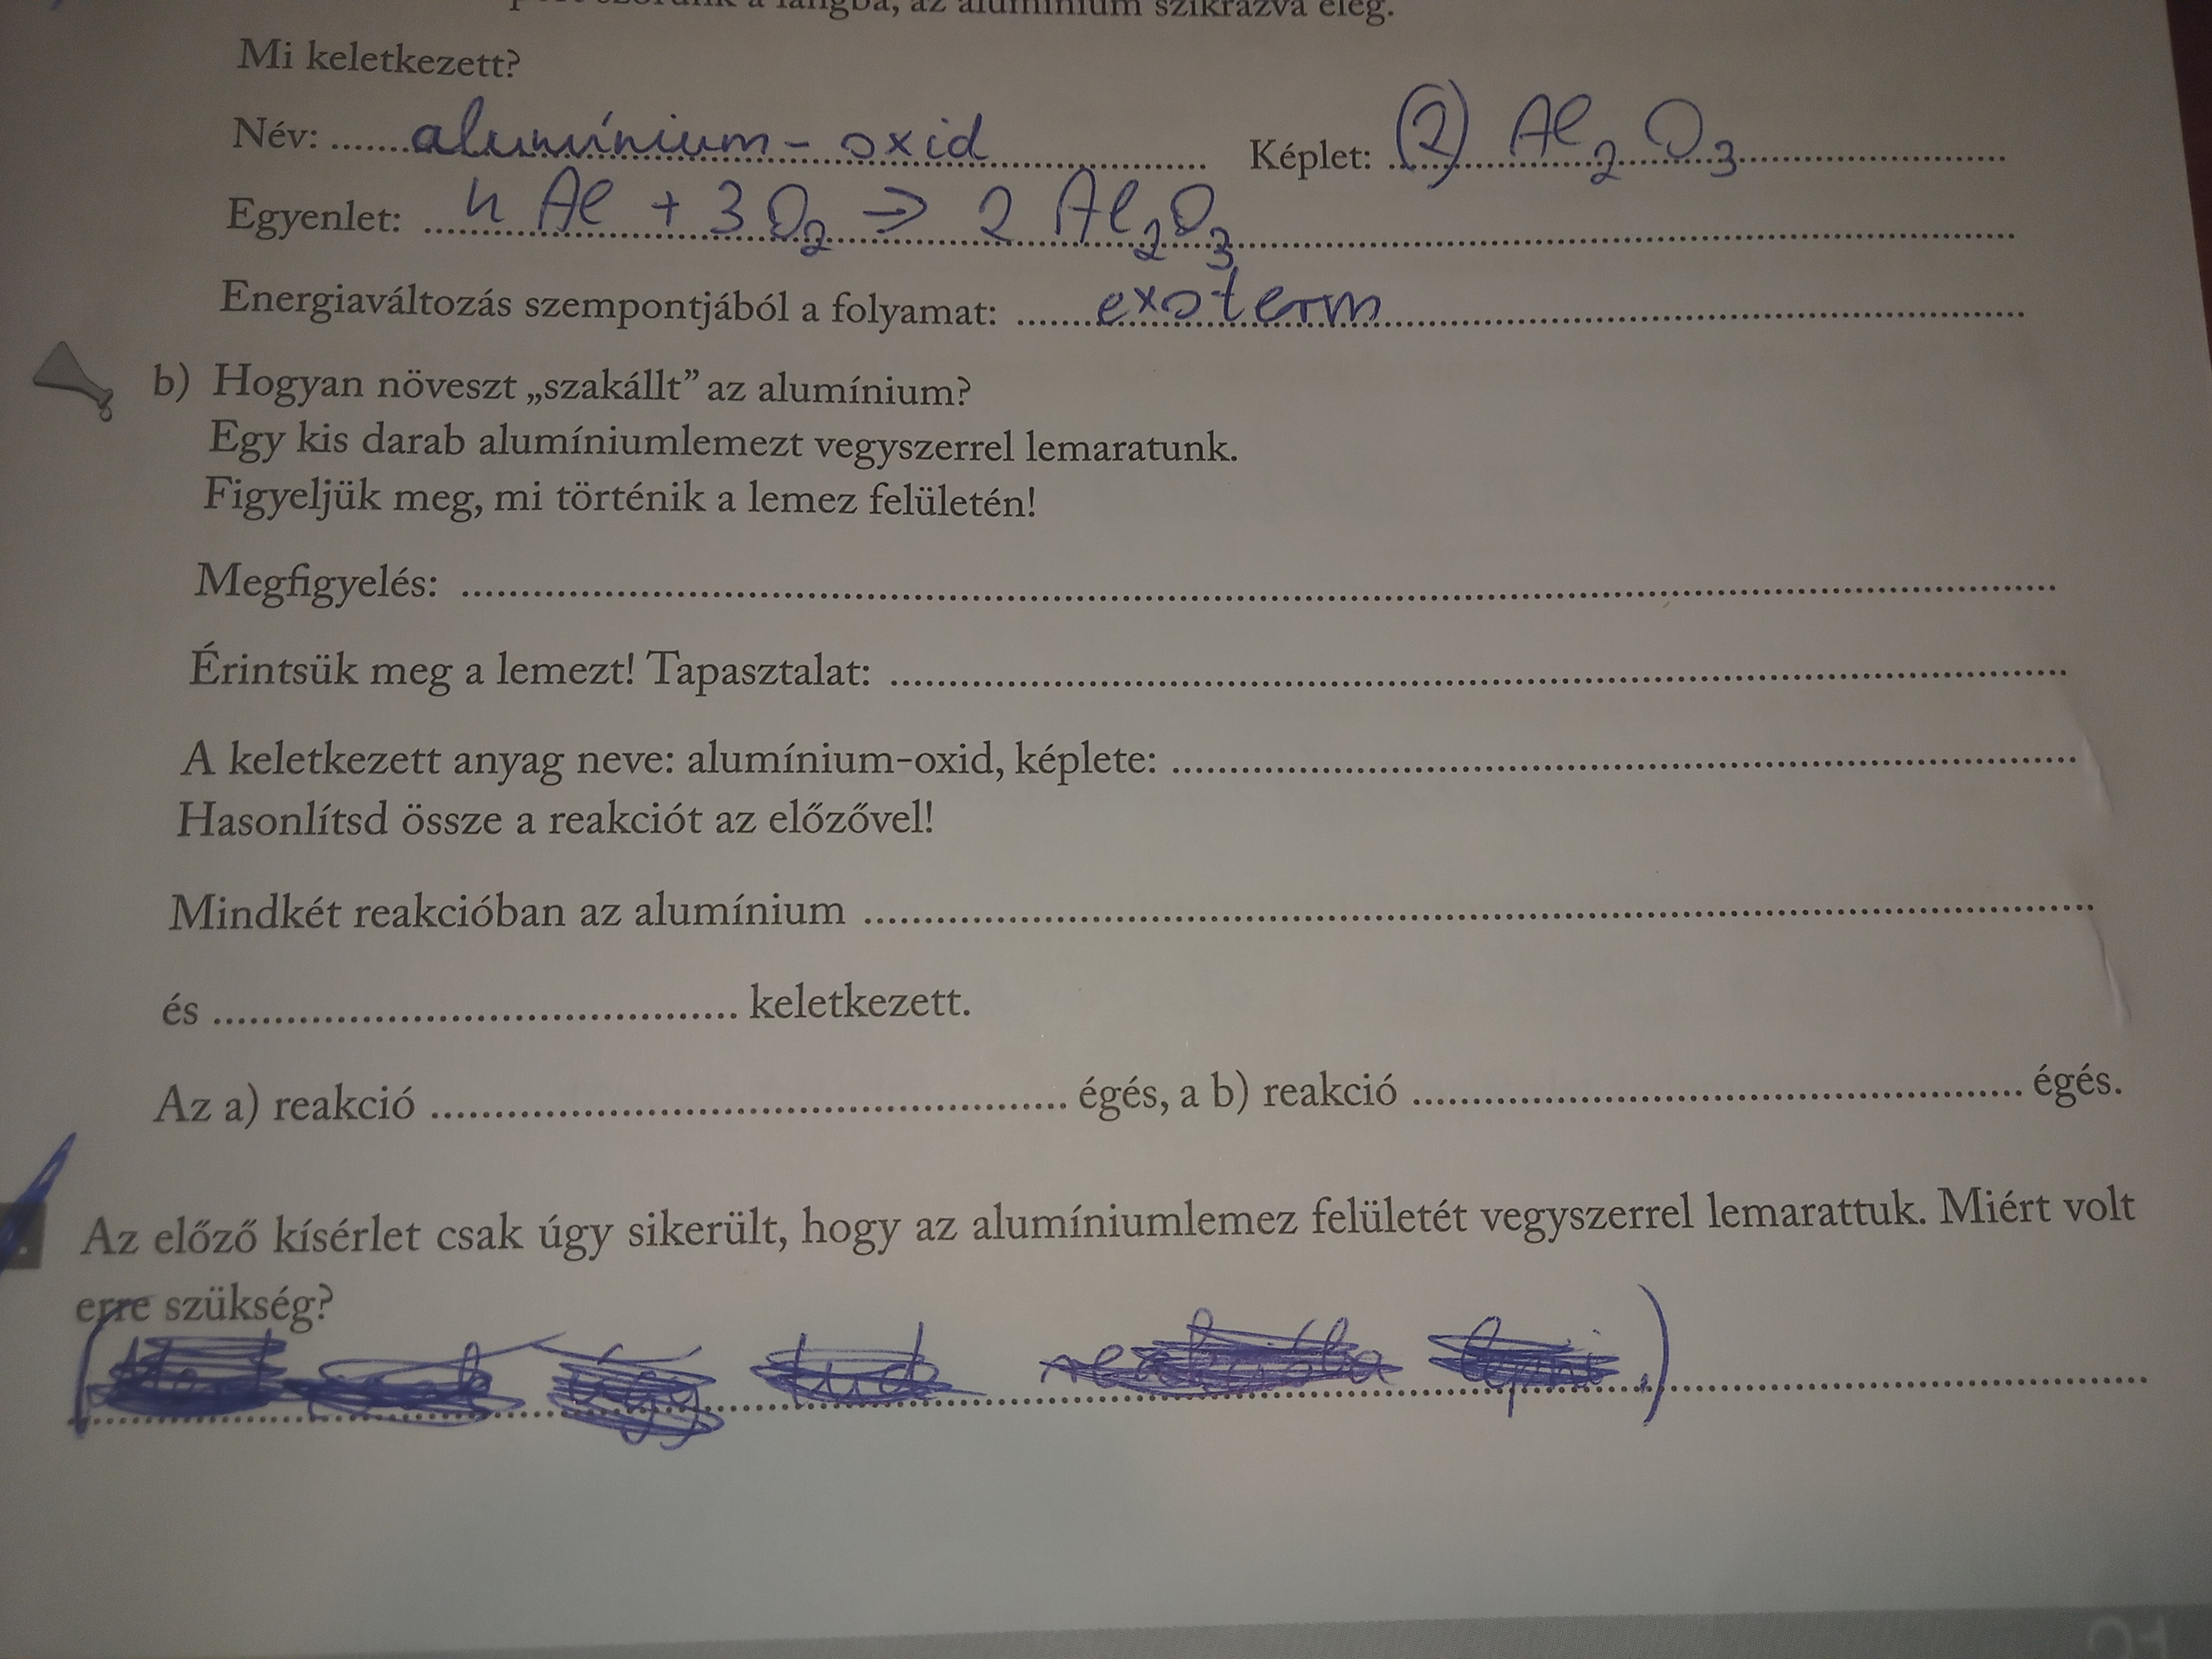 a lángba, az alumínium szikrázva elég.
Mi keletkezett?
Név: alumínium-oxid Képlet: (2) Al2O3
Egyenlet: 4 Al + 3 O2 → 2 Al2O3
Energiaváltozás szempontjából a folyamat: exoterm
b) Hogyan növeszt „szakállt” az alumínium?
Egy kis darab alumíniumlemezt vegyszerrel lemaratunk.
Figyeljük meg, mi történik a lemez felületén!
Megfigyelés:
Érintsük meg a lemezt! Tapasztalat:
A keletkezett anyag neve: alumínium-oxid, képlete:
Hasonlítsd össze a reakciót az előzővel!
Mindkét reakcióban az alumínium
és keletkezett.
Az a) reakció égés, a b) reakció égés.
Az előző kísérlet csak úgy sikerült, hogy az alumíniumlemez felületét vegyszerrel lemarattuk. Miért volt
erre szükség?
( csak úgy tud reakcióba lépni.)